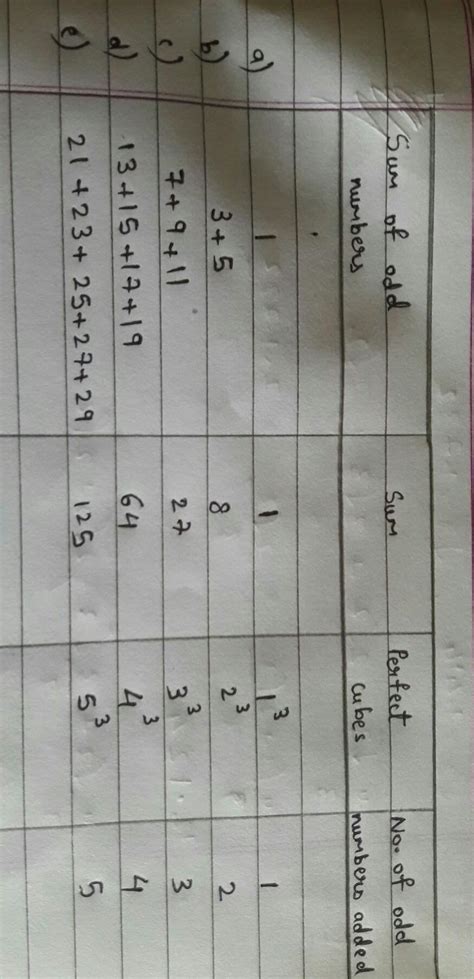 Sum of odd numbers Sum Perfect cubes No. of odd numbers added
a) 1 1 1³ 1
b) 3+5 8 2³ 2
c) 7+9+11 27 3³ 3
d) 13+15+17+19 64 4³ 4
e) 21+23+25+27+29 125 5³ 5